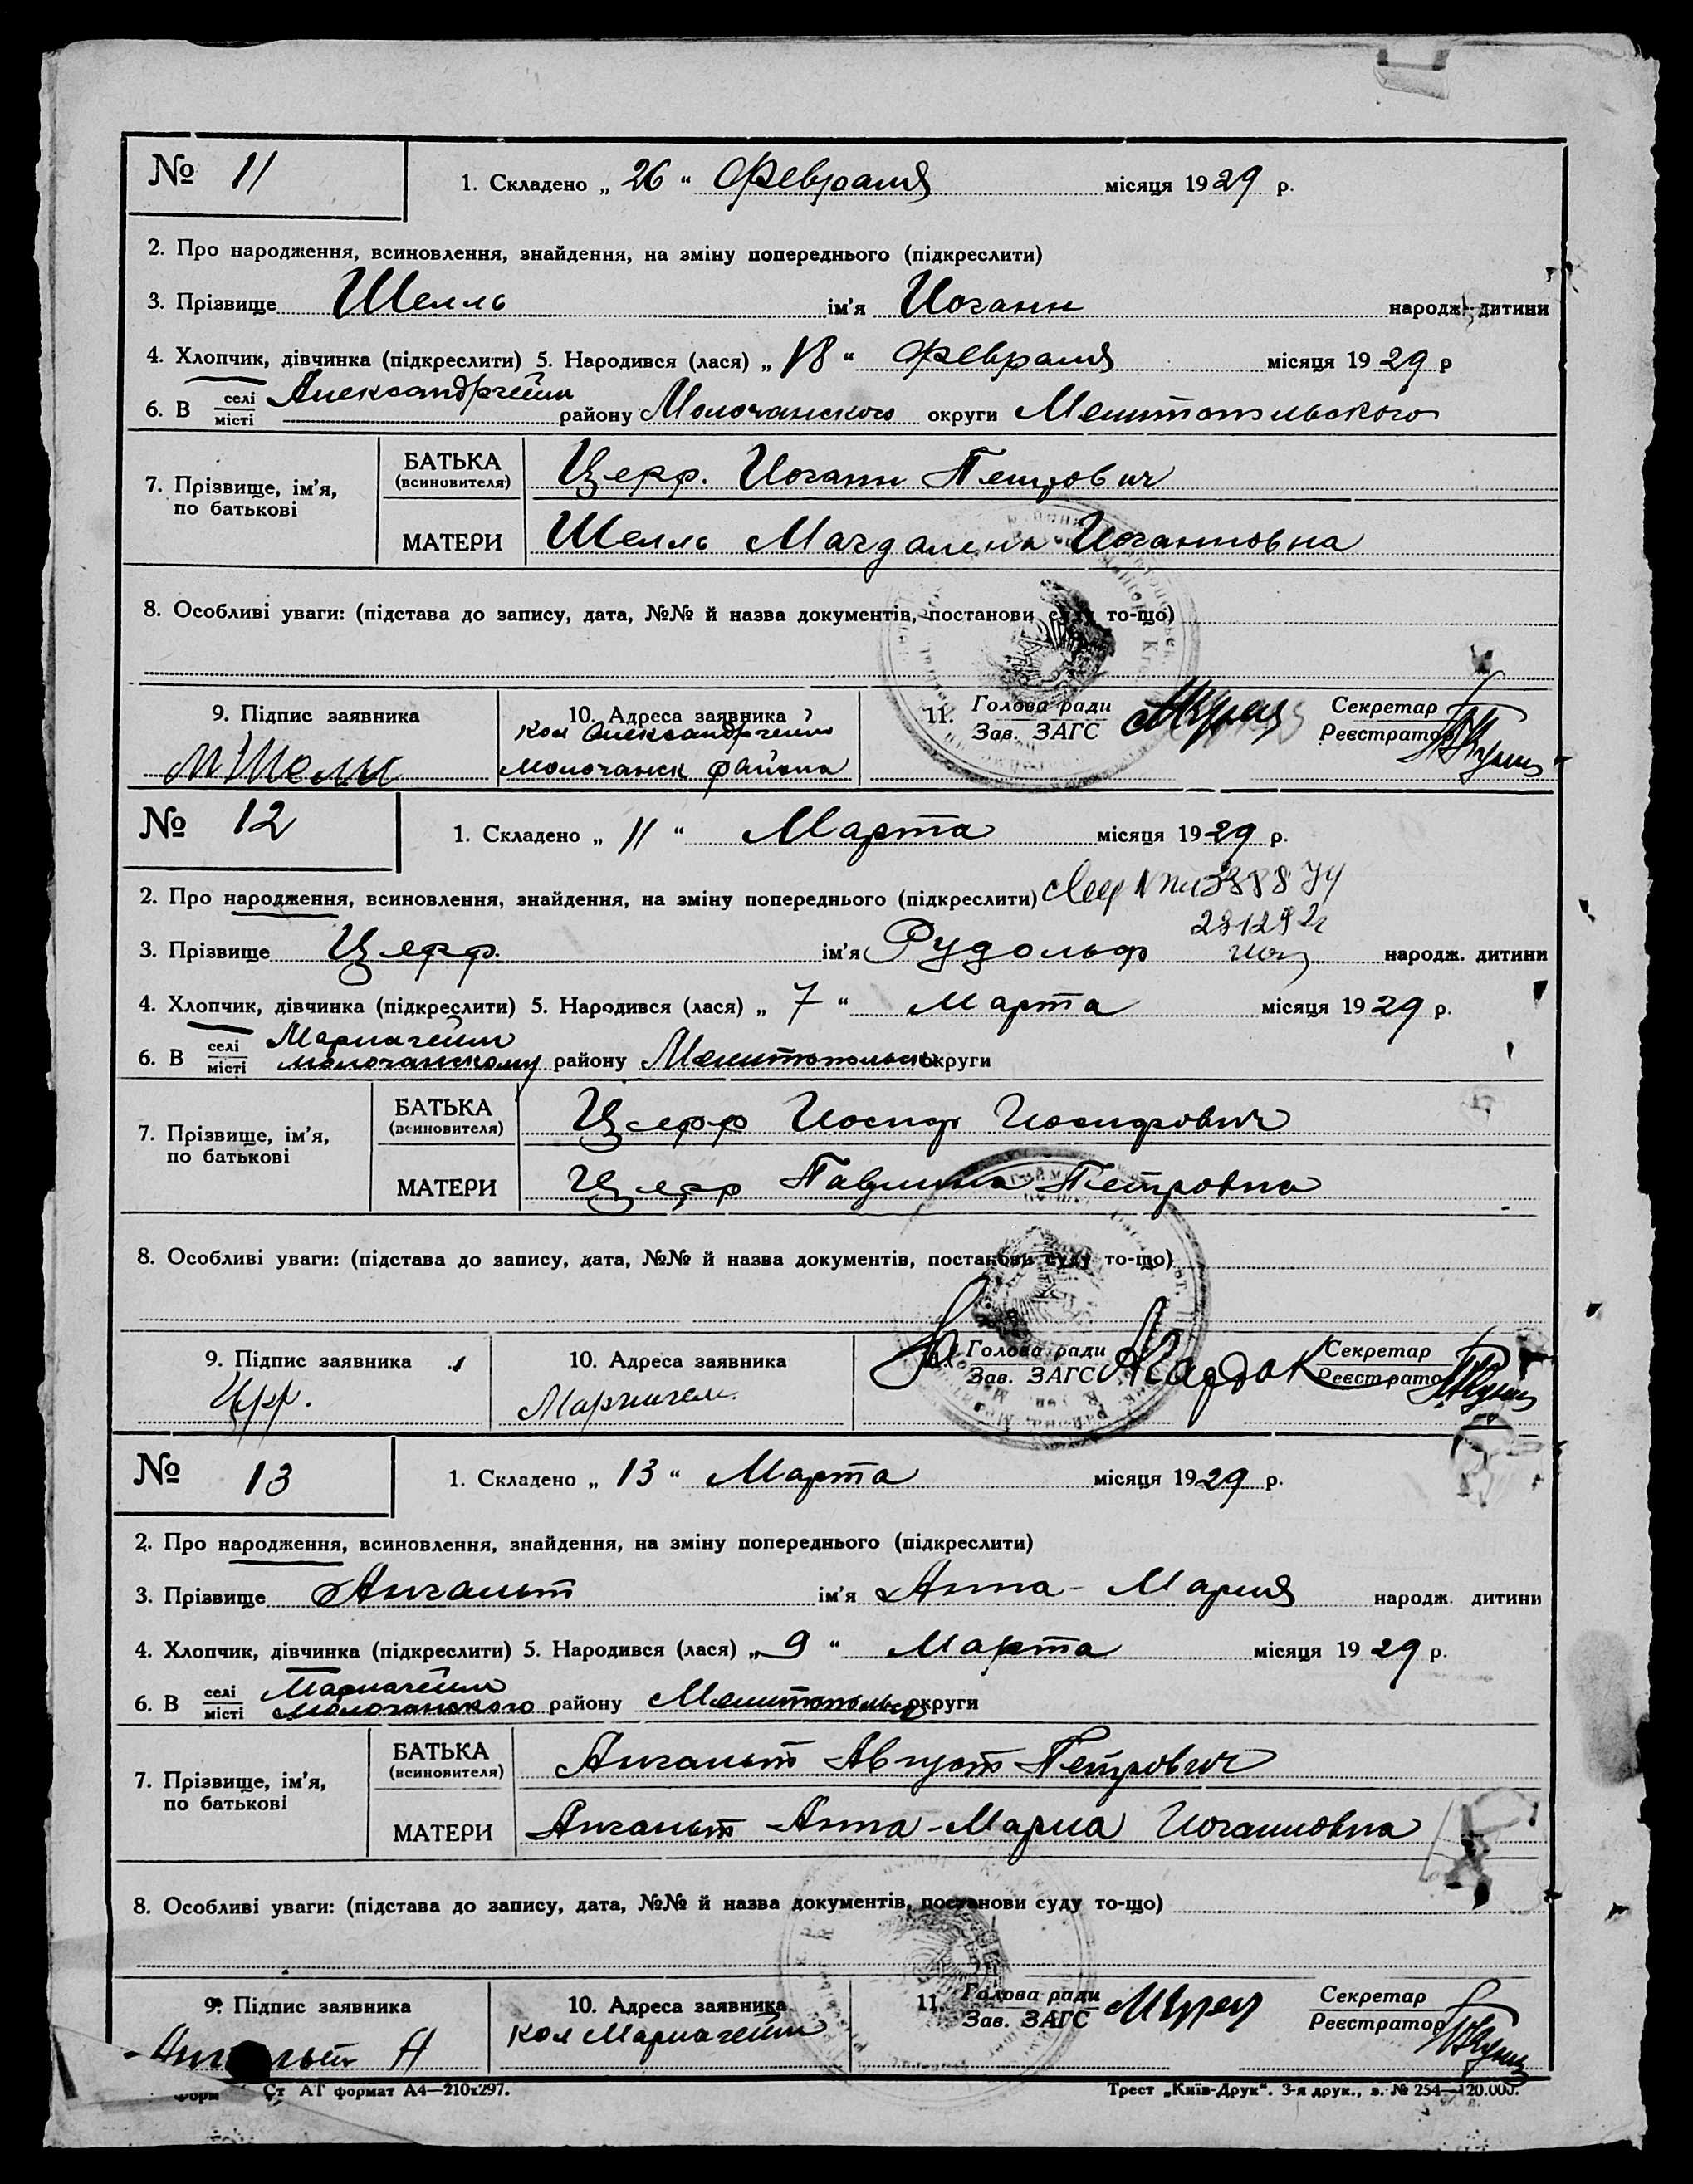 № 11
1. Складено „ 26 “ Февраля місяця 1929 р.
2. Про народження, всиновлення, знайдення, на зміну попереднього (підкреслити)
3. Прізвище Шелль ім’я Иоганн народж. дитини
4. Хлопчик, дівчинка (підкреслити) 5. Народився (лася) „ 18 “ Февраля місяця 1929 р
6. В селі місті Александргейм району Молочанского округи Мелитопольского
7. Прізвище, ім’я, по батькові
БАТЬКА (всиновителя) Церр. Иоганн Петрович
МАТЕРИ Шелль Магдалена Иоганновна
8. Особливі уваги: (підстава до запису, дата, №№ й назва документів, постанови суду то-що)
9. Підпис заявника
М Шелль
10. Адреса заявника
Кол Александргейм
Молочанск района
11. Голова ради Зав. ЗАГС
Секретар Реєстратор
№ 12
1. Складено „ 11 “ Марта місяця 1929 р.
2. Про народження, всиновлення, знайдення, на зміну попереднього (підкреслити)
3. Прізвище Церр. ім’я Рудольф народж. дитини
4. Хлопчик, дівчинка (підкреслити) 5. Народився (лася) „ 7 “ Марта місяця 1929 р.
6. В селі місті Мариагейм Молочанскому району Мелитопольск округи
7. Прізвище, ім’я, по батькові
БАТЬКА (всиновителя) Церр Иосиф Иосифович
МАТЕРИ Церр Павлина Петровна
8. Особливі уваги: (підстава до запису, дата, №№ й назва документів, постанови суду то-що)
9. Підпис заявника
Церр.
10. Адреса заявника
11. Голова ради Зав. ЗАГС
Секретар Реєстратор
№ 13
1. Складено „ 13 “ Марта місяця 1929 р.
2. Про народження, всиновлення, знайдення, на зміну попереднього (підкреслити)
3. Прізвище Ангальт ім’я Анна-Мария народж. дитини
4. Хлопчик, дівчинка (підкреслити) 5. Народився (лася) „ 9 “ Марта місяця 1929 р.
6. В селі місті Мариагейм Молочанского району Мелитопольск округи
7. Прізвище, ім’я, по батькові
БАТЬКА (всиновителя) Ангальт Август Петрович
МАТЕРИ Ангальт Анна-Мариа Иоганновна
8. Особливі уваги: (підстава до запису, дата, №№ й назва документів, постанови суду то-що)
9. Підпис заявника
Ангальт А
10. Адреса заявника
Кол Мариагейм
11. Голова ради Зав. ЗАГС
Секретар Реєстратор
Форм Ст АТ формат А4—210х297.
Трест „Київ-Друк“. 3-я друк., з. № 254—120.000.